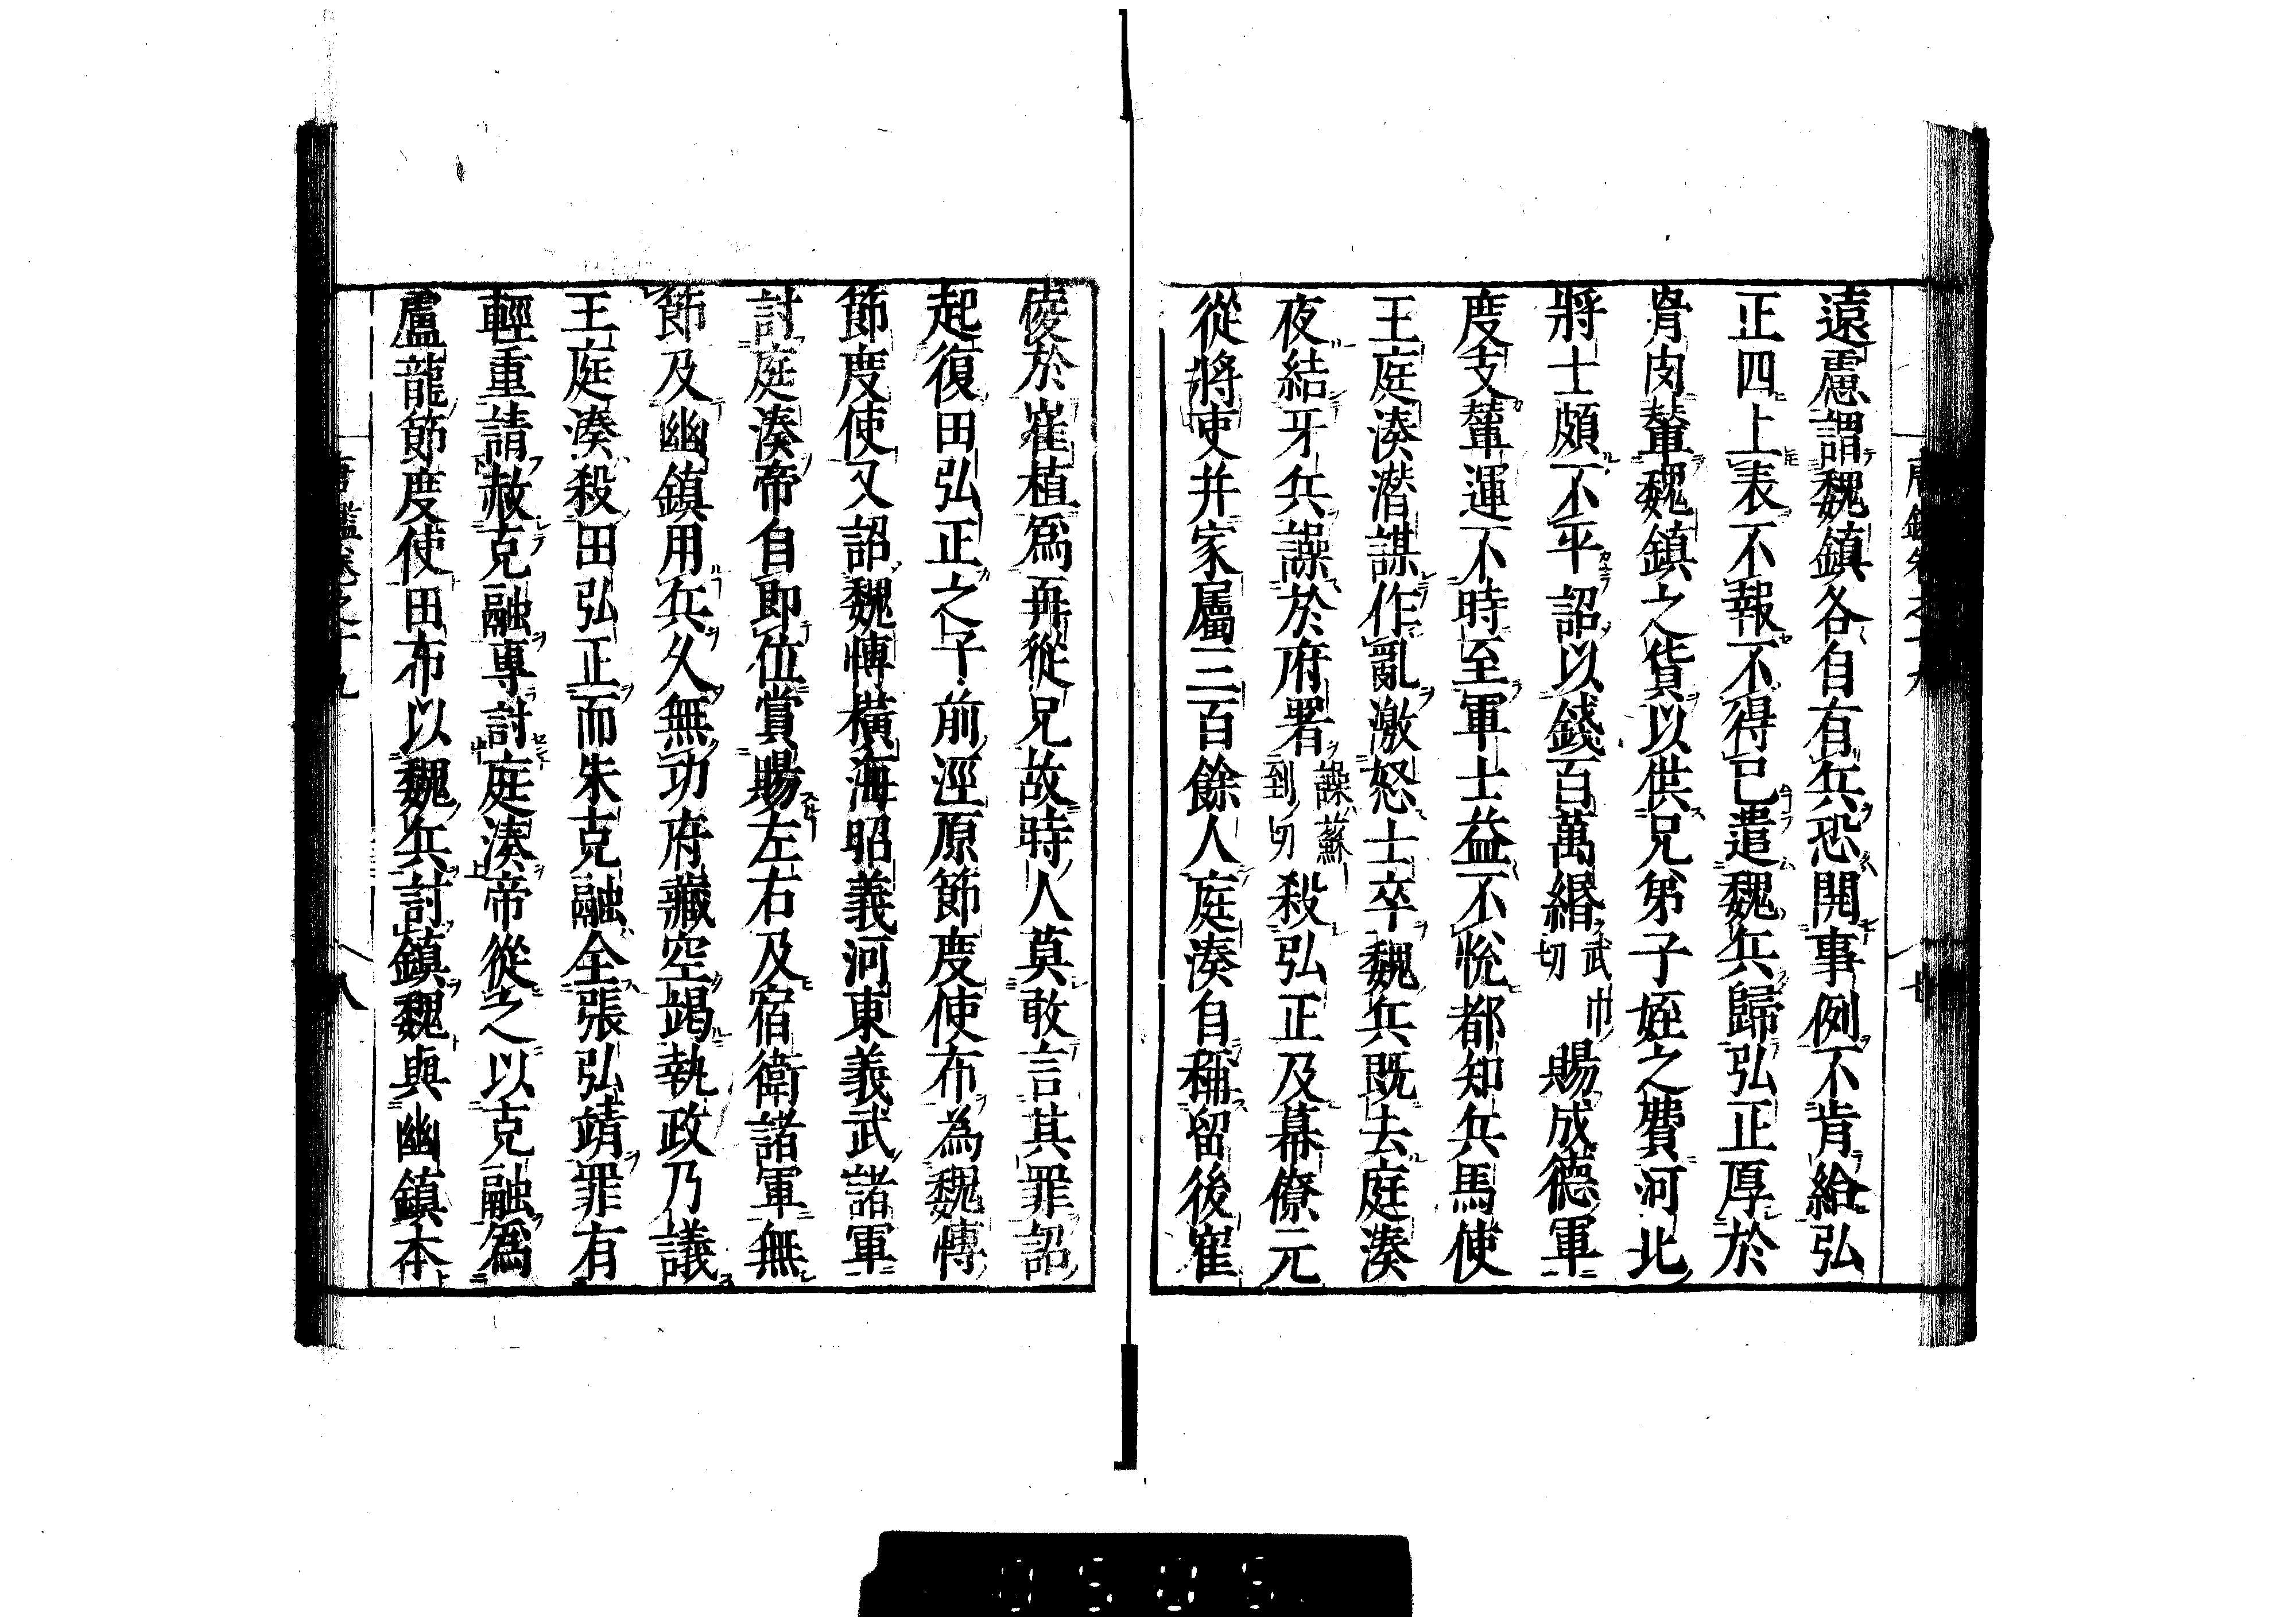 遠慮謂魏鎮各自有兵恐開事例不肯給弘
正四上表不報不得已遣魏兵歸弘正厚於
骨肉輦魏鎮之貨以供兄弟子姪之費河北
將士頗不平詔以錢百萬緡武巾切賜成德軍
度支輦運不時至軍士益不悅都知兵馬使
王庭湊潛謀作亂激怒士卒魏兵既去庭湊
夜結牙兵譟於府署譟蘇到切殺弘正及幕僚元
從將吏并家屬三百餘人庭湊自稱留後崔
倰於崔植爲再從兄故時人莫敢言其罪詔
起復田弘正之子前涇原節度使布為魏博
節度使又詔魏博橫海昭義河東義武諸軍
討庭湊帝自即位賞賜左右及宿衛諸軍無
節及幽鎮用兵久無功府藏空竭執政乃議
王庭湊殺田弘正而朱克融全張弘靖罪有
輕重請赦克融專討庭湊帝從之以克融爲
盧龍節度使田布以魏兵討鎮魏與幽鎮本
唐鑑卷之十九
八